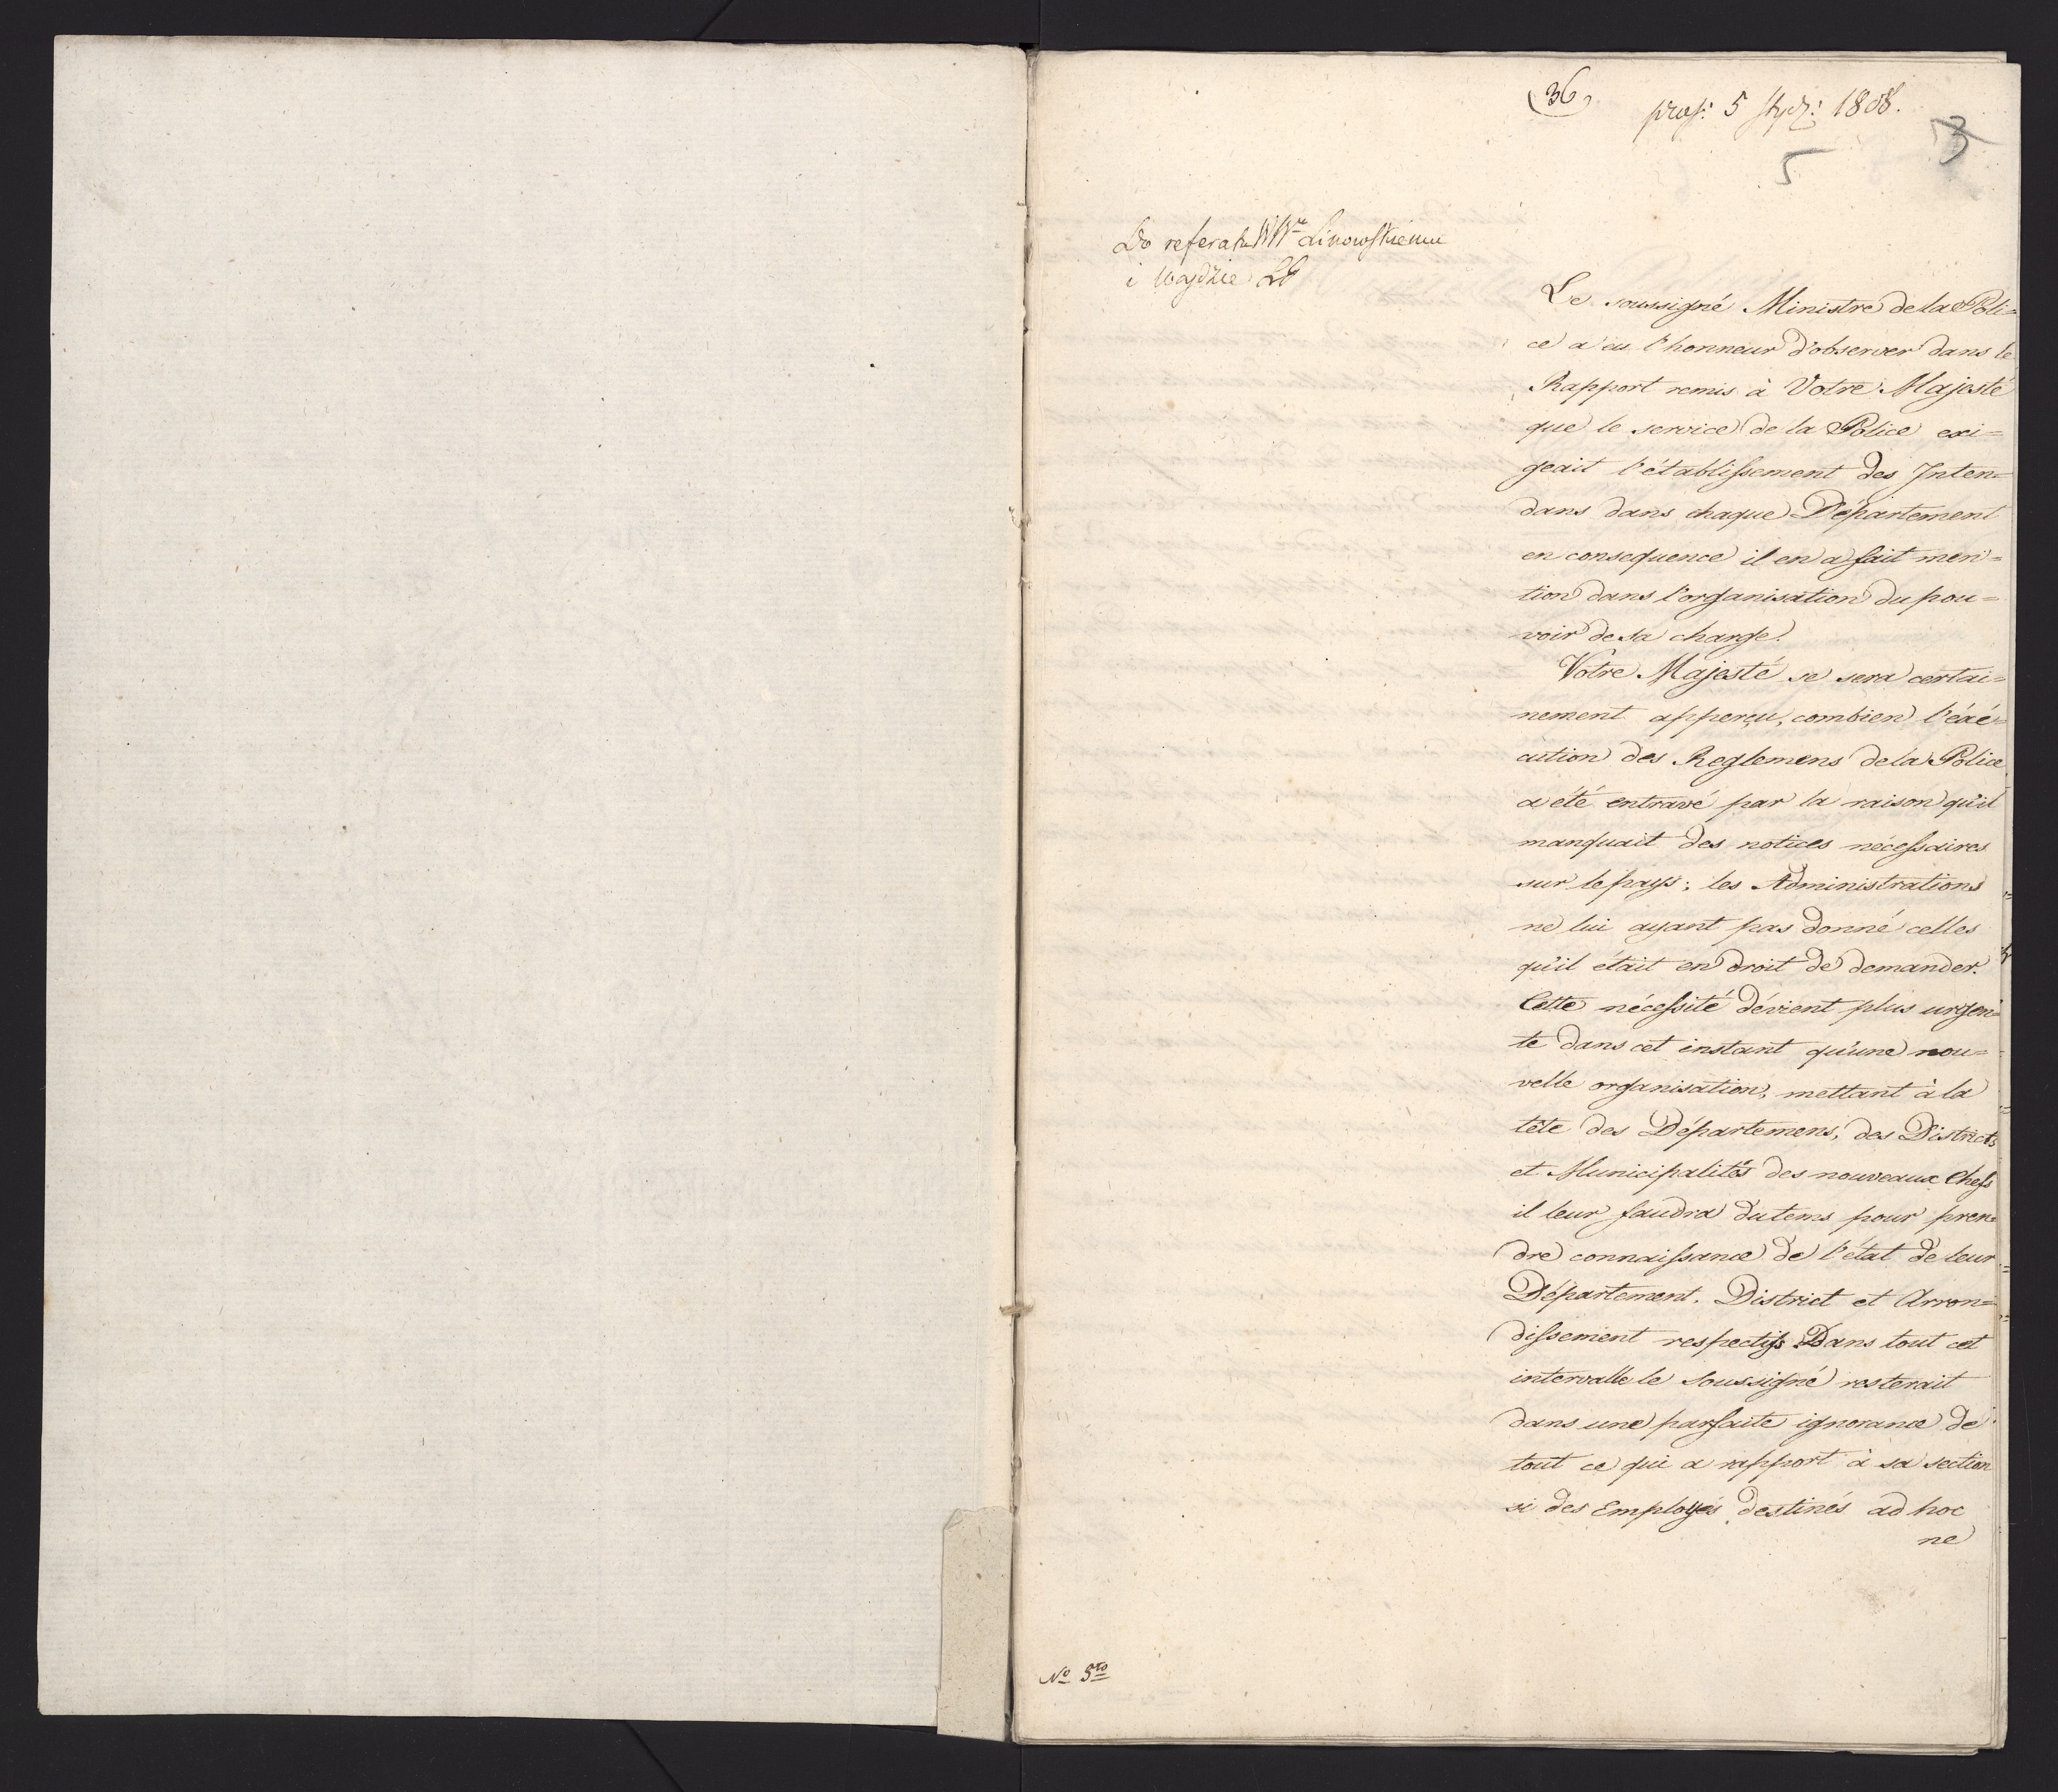 (36)
præs: 5 stycz: 1808.
3
5
Do referatu WWu Linowskiemu
i Woydzie
Le soussigné Ministre de la Poli=
ce a eu l'honneur d'observer dans le
Rapport remis à Votre Majesté
que le service de la Police exi=
geait l'établissement des Inten=
dans dans chaque Département
en consequence il en a fait men=
tion dans l'organisation du pou=
voir de sa charge.
Votre Majesté se sera certai=
nement apperçu, combien l'éxé=
cution des Reglemens de la Police
a été entravé par la raison qu'il
manquait des notices nécessaires
sur le pays; les Administrations
ne lui ayant pas donné celles
qu'il était en droit de demander.
Cette nécessité dévient plus urgen=
te dans cet instant qu'une nou=
velle organisation, mettant à la
tête des Départemens, des Districts
et Municipalités des nouveaux Chefs
il leur faudra du tems pour pren=
dre connaissance de l'état de leur
Département. District et Arron=
dissement respectifs. Dans tout cet
intervalle le soussigné resterait
dans une parfaite ignorance de
tout ce qui a rapport à sa section
si des Employés destinés ad hoc
ne
No 5to